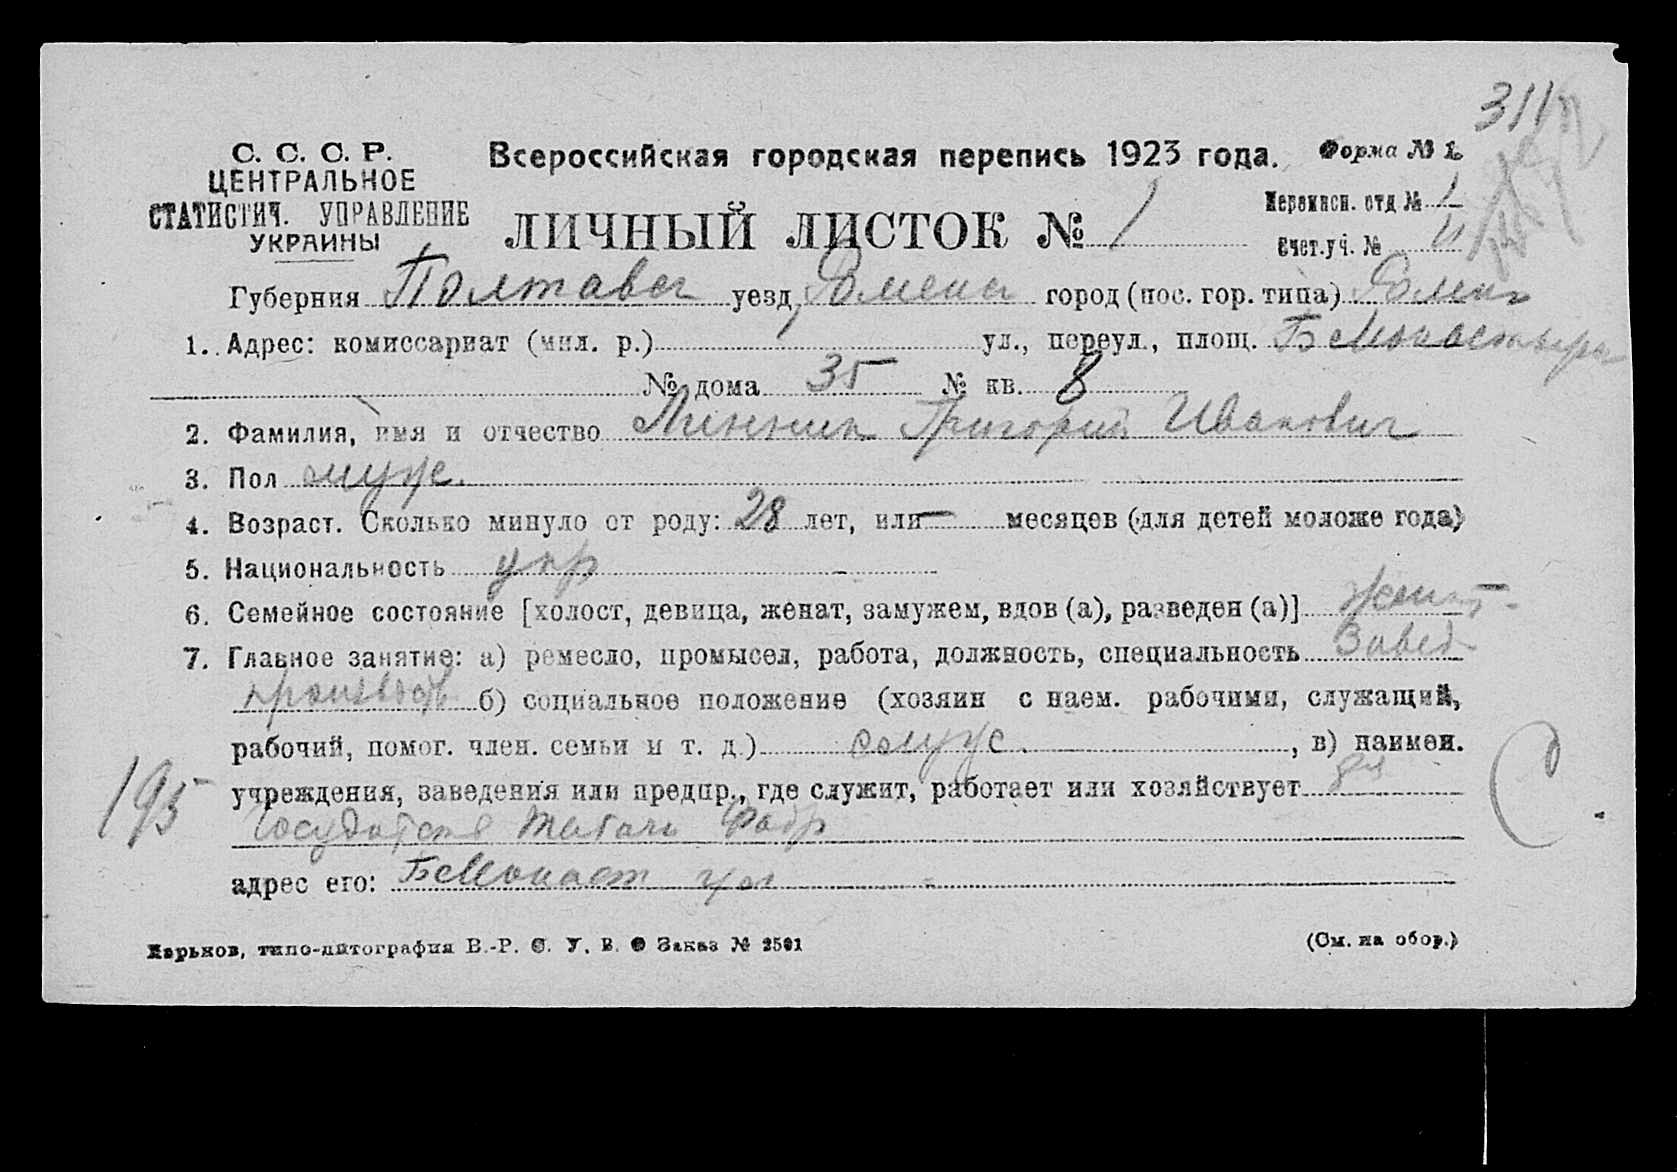 311
С. С. С. Р.
ЦЕНТРАЛЬНОЕ
СТАТИСТИЧ. УПРАВЛЕНИЕ
УКРАИНЫ
Всероссийская городская перепись 1923 года.
Форма № 1.
ЛИЧНЫЙ ЛИСТОК № 1
Переписн. отд № 1
Счет.уч. № 11
Губерния Полтавск уезд Роменск город (пос. гор. типа) Ромны
1. Адрес: комиссариат (мил. р.) ул., переул., площ. Б Монастырск
№ дома 35 № кв. 8
2. Фамилия, имя и отчество Линник Григорий Иванович
3. Пол муж.
4. Возраст. Сколько минуло от роду: 28 лет, или — месяцев (для детей моложе года)
5. Национальность укр
6. Семейное состояние [холост, девица, женат, замужем, вдов (а), разведен (а)] женат
7. Главное занятие: а) ремесло, промысел, работа, должность, специальность Завед
производств б) социальное положение (хозяин с наем. рабочими, служащий,
рабочий, помог. член. семьи и т. д.) служ. , в) наимен.
195
учреждения, заведения или предпр., где служит, работает или хозяйствует
С.
Государств Табачн Фабр
адрес его: Б Монаст ул
Харьков, типо-литография В.-Р. С. У. В. О Заказ № 2501
(См. на обор.)